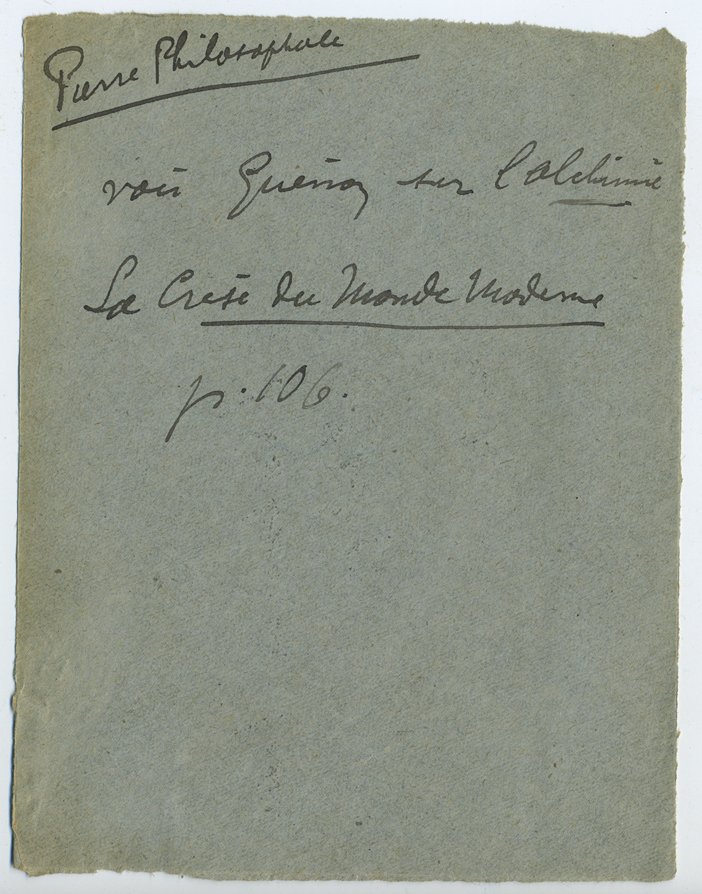 Pierre Philosophale
voir Guénon sur l'alchimie
La Crise du Monde Moderne
p. 106.